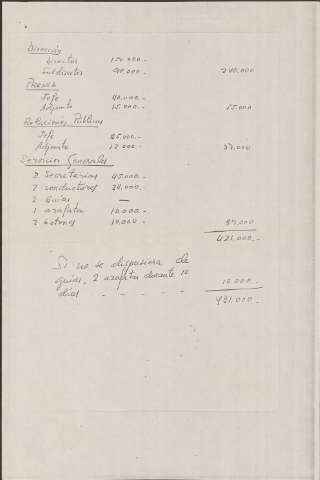 Dirección
Director 150.000.-
Subdirector 90.000.- 240.000
Prensa
Jefe 40.000.-
Adjunto 15.000.- 55.000
Relaciones Públicas
Jefe 25.000.-
Adjunto 12.000.- 37.000
Servicios Generales
3 Secretarias 45.000.-
2 conductores 24.000.-
2 Guías —
1 azafata 10.000.-
2 botones 10.000.- 89.000
421.000.-
Si no se dispusiera de
guías, 2 azafatas durante 10
días - - - - - 10.000.-
431.000.-